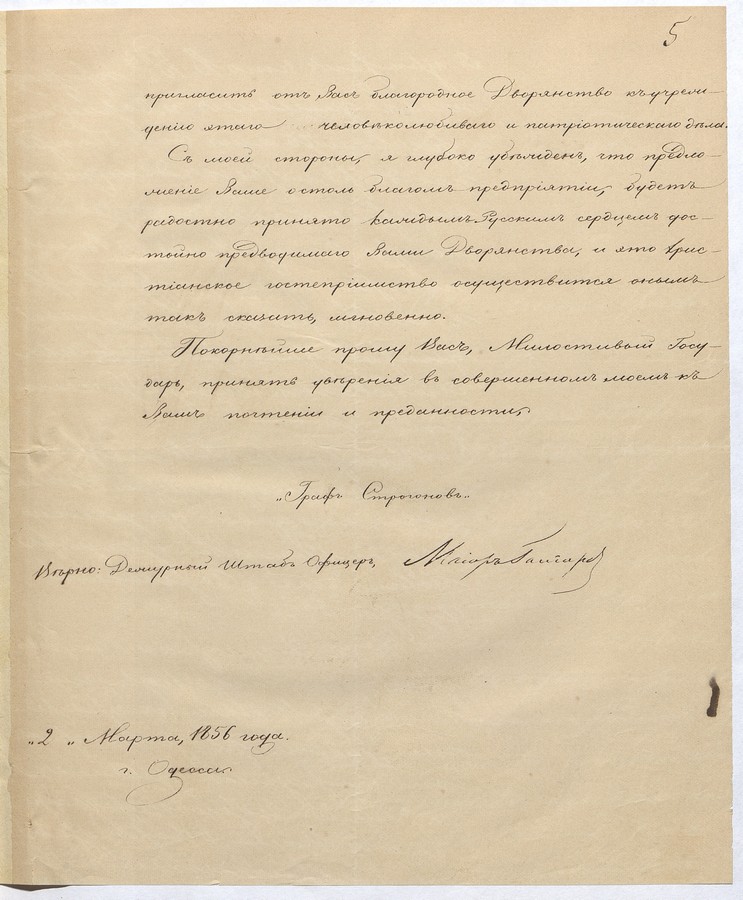 5
пригласить отъ Васъ благородное Дворянство къ учреж-
денію этаго человѣколюбиваго и патріотическаго дѣла.
Съ моей стороны, я глубоко убѣжденъ, что предло-
женіе Ваше о столь благомъ предпріятіи, будетъ
радостно принято каждымъ Русскимъ сердцемъ дос-
тойно предводимаго Вами Дворянства, и это хрис-
тіанское гостепріимство осуществится онымъ
такъ сказать, мгновенно.
Покорнѣйше прошу Васъ, Милостивый Госу-
дарь, принять увѣренія въ совершенномъ моемъ къ
Вамъ почтеніи и преданности,
„Графъ Строгоновъ„
Вѣрно: Дежурный Штабъ Офицеръ, Маіоръ
„2„ Марта, 1856 года.
г. Одесса.